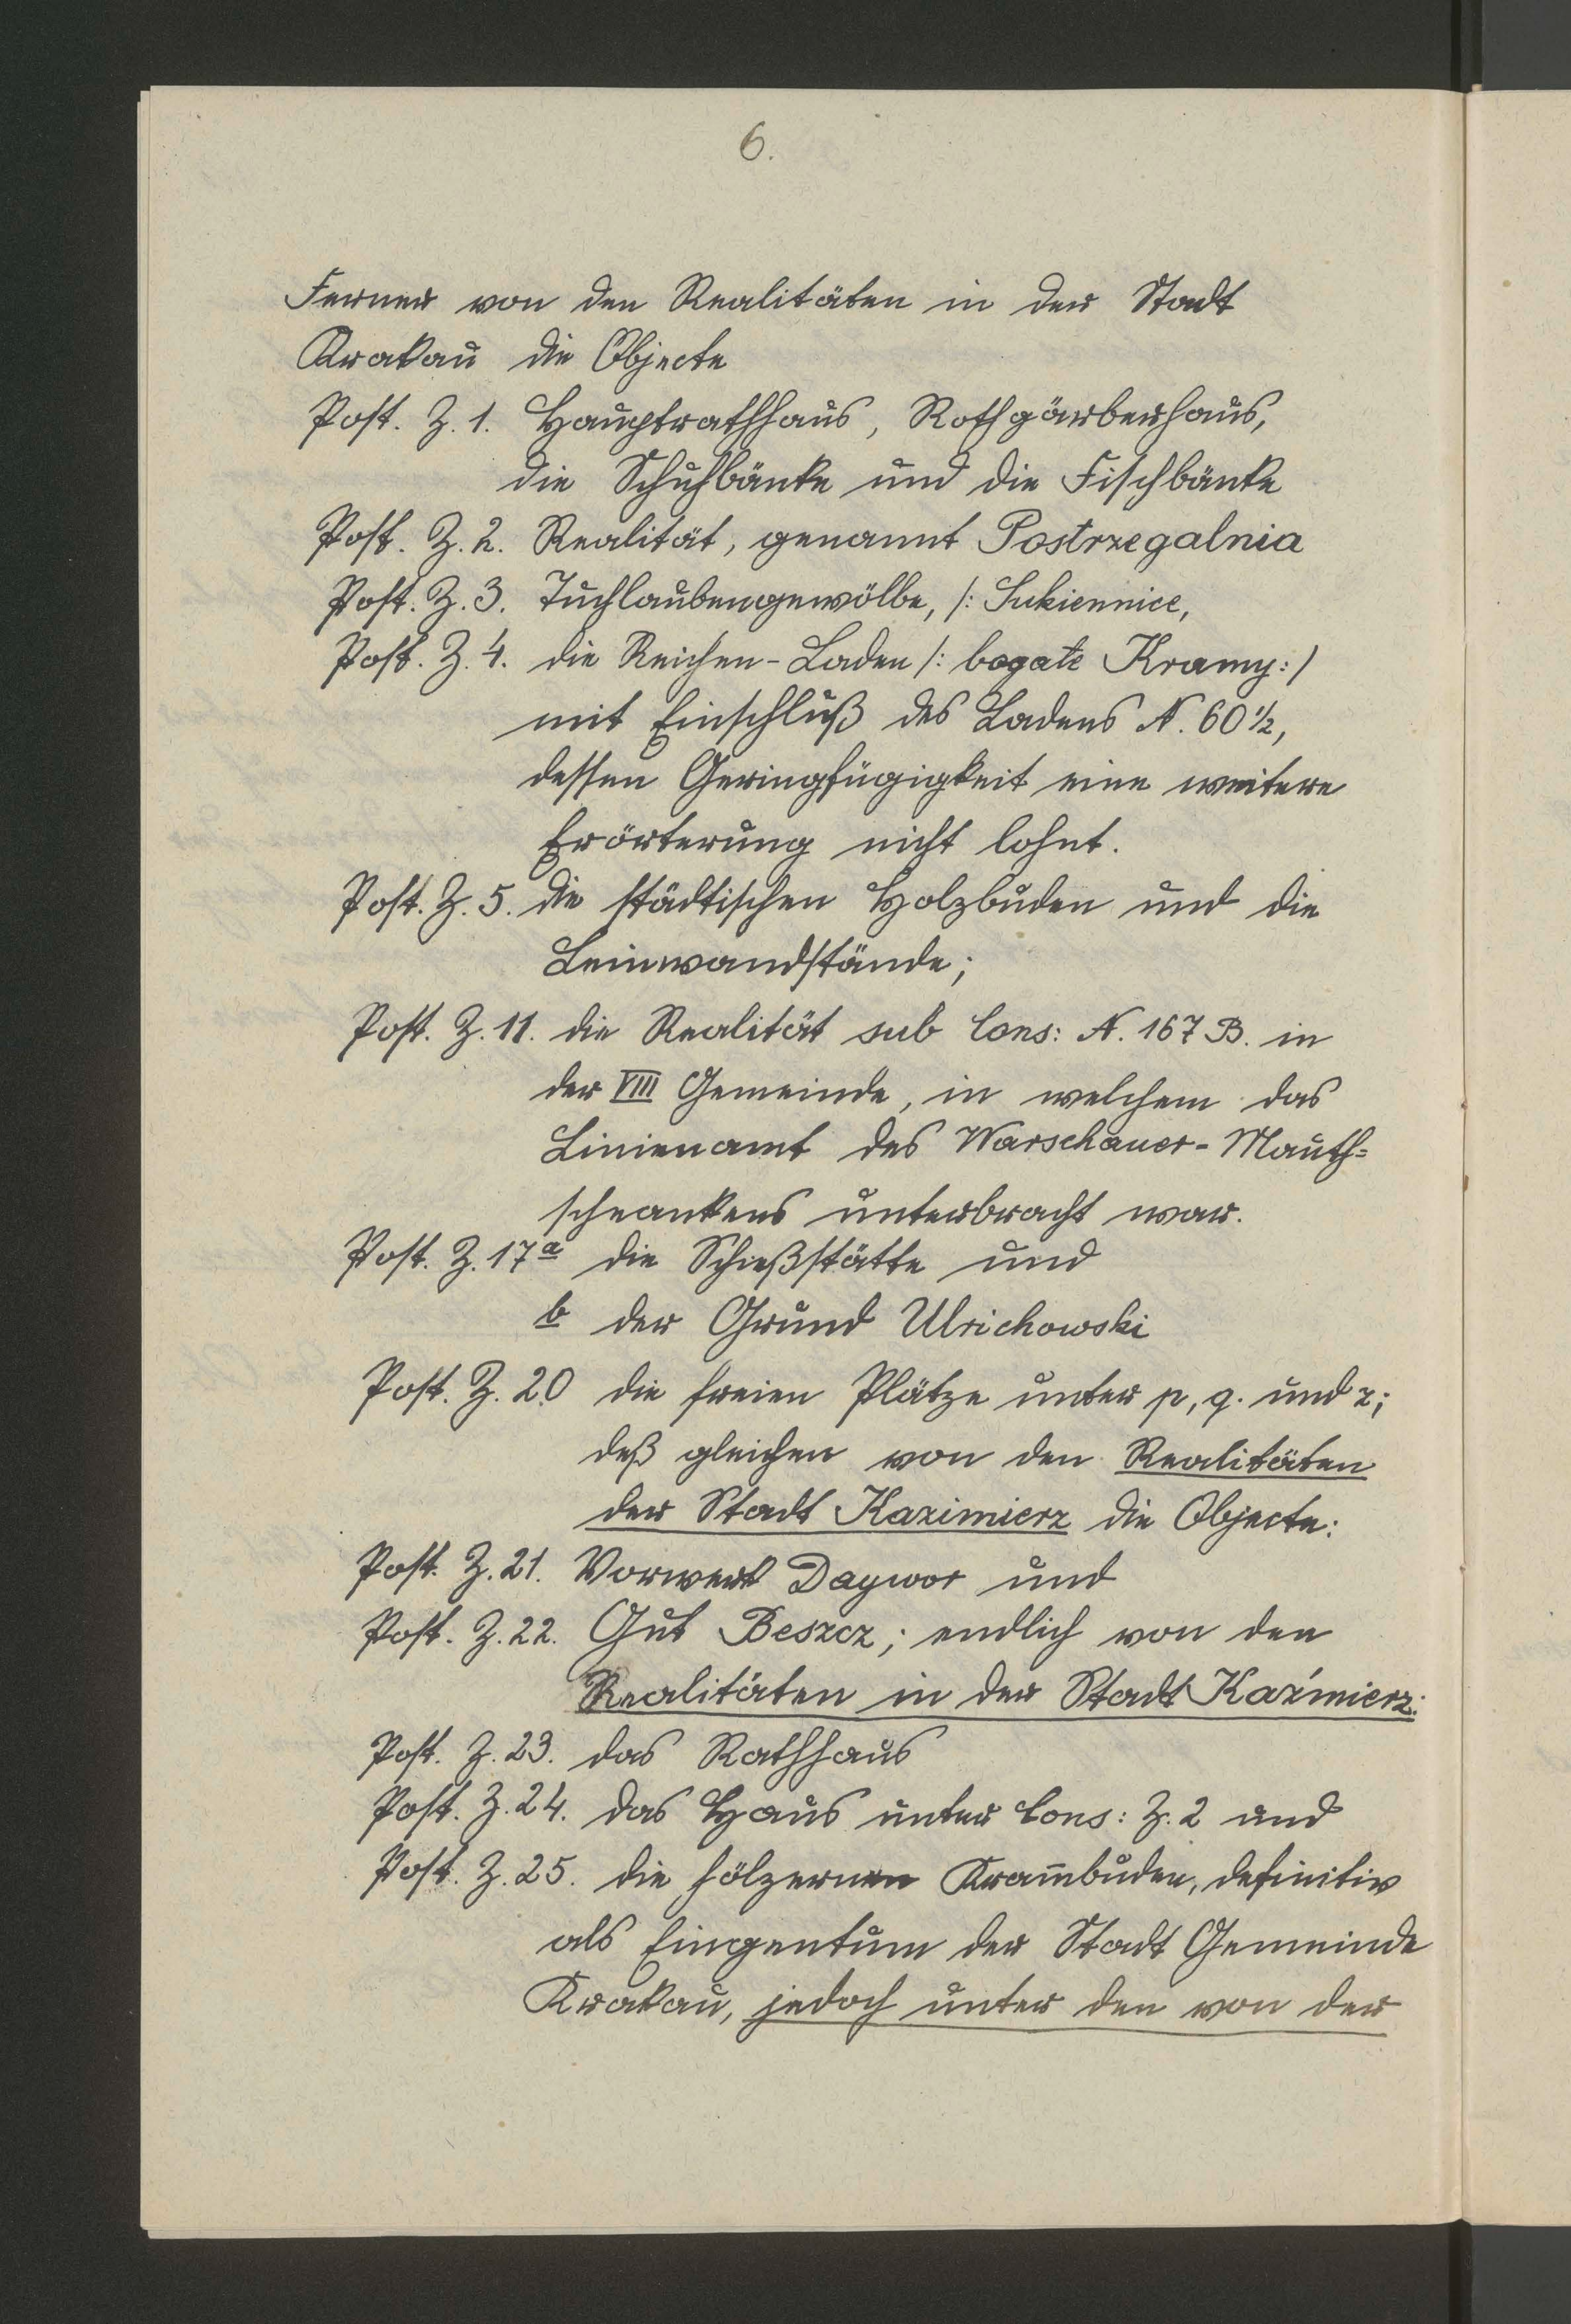 6.
Ferner von den Realitäten in der Stadt
Krakau die Objecte
Post. Z. 1. Hauptrathhaus, Rothgärberhaus,
die Schuhbänke und die Fischbänke
Post. Z. 2. Realität, genannt Postrzegalnia
Post. Z. 3. Tuchlaubengewölbe, /: Sukiennice,
Post. Z. 4. die Reichen-Laden /: bogate Kramy :/
mit Einschluß des Ladens N. 60 1/2,
dessen Geringfügigkeit eine weitere
Erörterung nicht lohnt.
Post. Z. 5. die städtischen Holzbuden und die
Leinwandstände;
Post. Z. 11. die Realität sub Cons: N. 167 B. in
der VIII Gemeinde, in welchem das
Linienamt des Warschauer-Mauth=
schrankens unterbracht war.
Post. Z. 17 a die Schießstätte und
b der Grund Ulrichowski
Post. Z. 20 die freien Plätze unter p, q. und r;
deß gleichen von den Realitäten
der Stadt Kazimierz die Objecte:
Post. Z. 21. Vorwerk Daywor und
Post. Z. 22. Gut Beszcz; endlich von den
Realitäten in der Stadt Kaźmierz:
Post. Z. 23. das Rathhaus
Post. Z. 24. das Haus unter Cons: Z. 2 und
Post. Z. 25. die hölzernen Kram̅buden, definitiv
als Eingentum der Stadt Gemeinde
Krakau, jedoch unter den von der